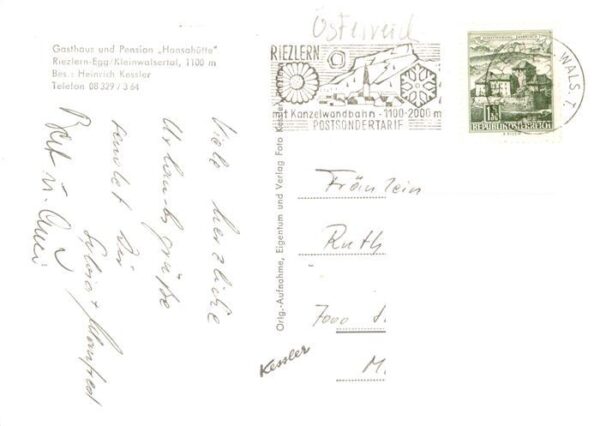 Österreich
Gasthaus und Pension „Hansahütte"
Riezlern-Egg/Kleinwalsertal, 1100 m
Bes.: Heinrich Kessler
Telefon 08 329 / 3 64
RIEZLERN
mit Kanzelwandbahn - 1100-2000 m
POSTSONDERTARIF
WALS. T.
REPUBLIK ÖSTERREICH
Viele herzliche
Urlaubsgrüße
sendet Dir
Sylvia + Manfred
Orig.-Aufnahme, Eigentum und Verlag Foto Kessler
Kessler
Fräulein
Ruth
7000
M.